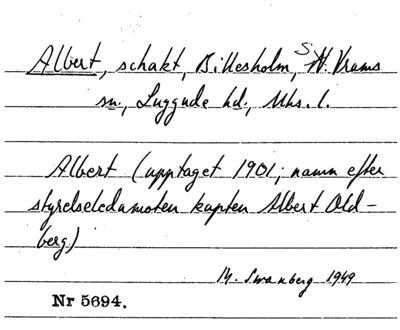 Albert, schakt, Billesholm, S N. Vrams
sn., Luggude hd., Mhs. l.
Albert (upptaget 1901; namn efter
styrelseledamoten kapten Albert Old-
berg.)
M. Swanberg 1949
Nr 5694.